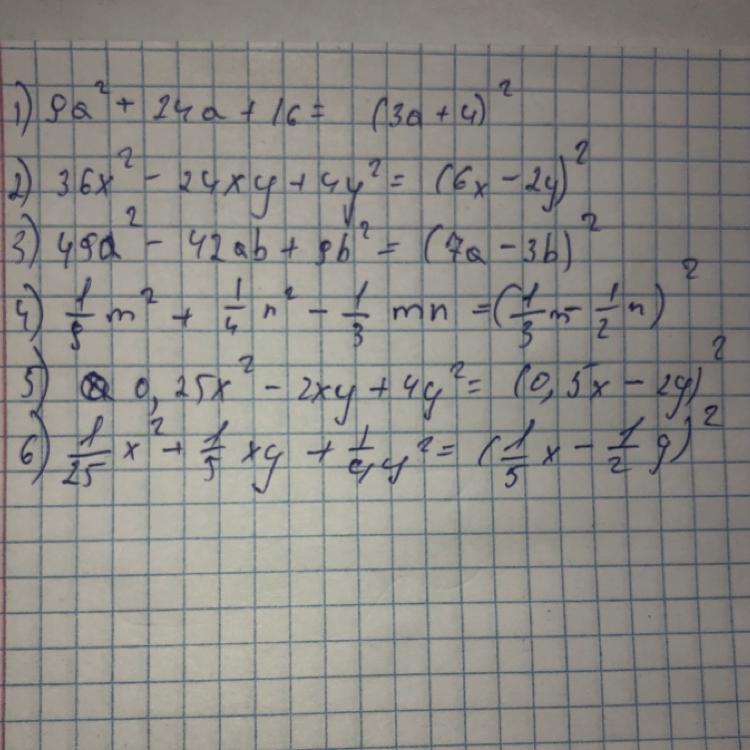 1) 9a² + 24a + 16 = (3a + 4)²
2) 36x² - 24xy + 4y² = (6x - 2y)²
3) 49a² - 42ab + 9b² = (7a - 3b)²
4) 1/9 m² + 1/4 n² - 1/3 mn = (1/3 m - 1/2 n)²
5) 0,25x² - 2xy + 4y² = (0,5x - 2y)²
6) 1/25 x² + 1/5 xy + 1/4 y² = (1/5 x - 1/2 y)²